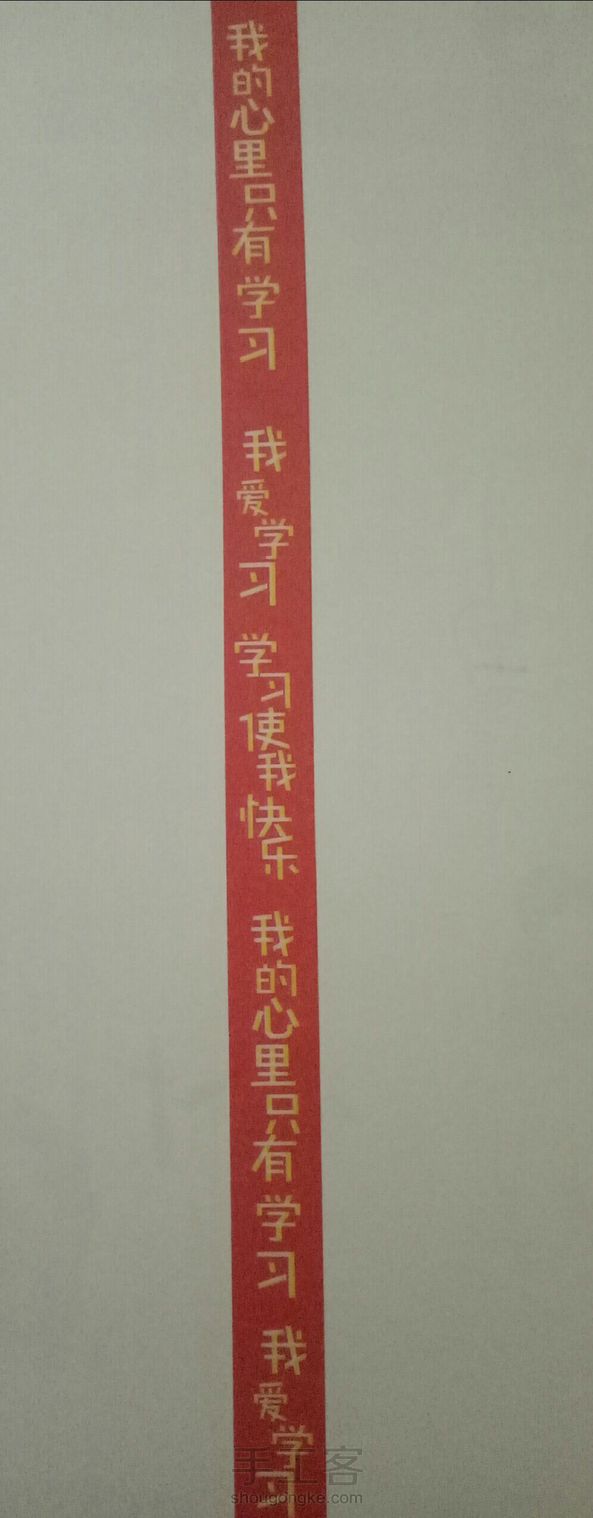 我的心里只有学习
我爱学习
学习使我快乐
我的心里只有学习
我爱学习
手工客
shougongke.com